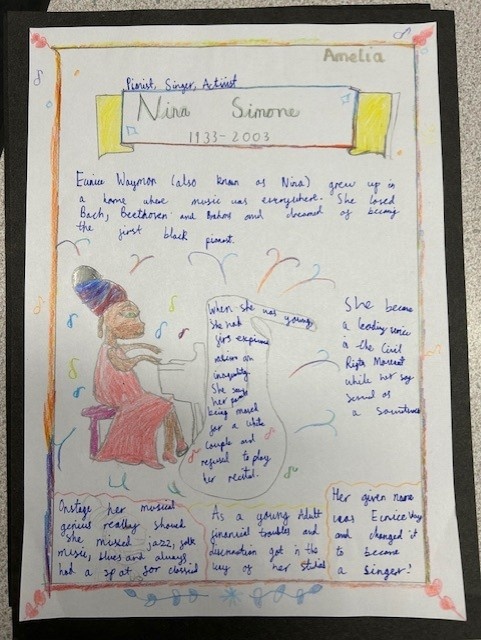 Amelia
Pianist, Singer, Activist
Nina Simone
1933-2003
Eunice Waymon (also known as Nina) grew up in
a home where music was everywhere. She loved
Bach, Beethoven and Brahms and dreamed of becoming
the first black pianist.
When she was young
She had
first
racism an
inequality
She saw
her parents
being moved
for a white
couple and
refused to play
her recital.
She became
a leading voice
in the Civil
Rights Movement
while her song
served as
a Soundtrack
Onstage her musical
genius really showed
She mixed jazz, folk
music, blues and always
had a spot for classical
As a young Adult
financial troubles and
discrimination got in the
way of her studies
Her given name
was Eunice Way
and changed it
to become
a singer!